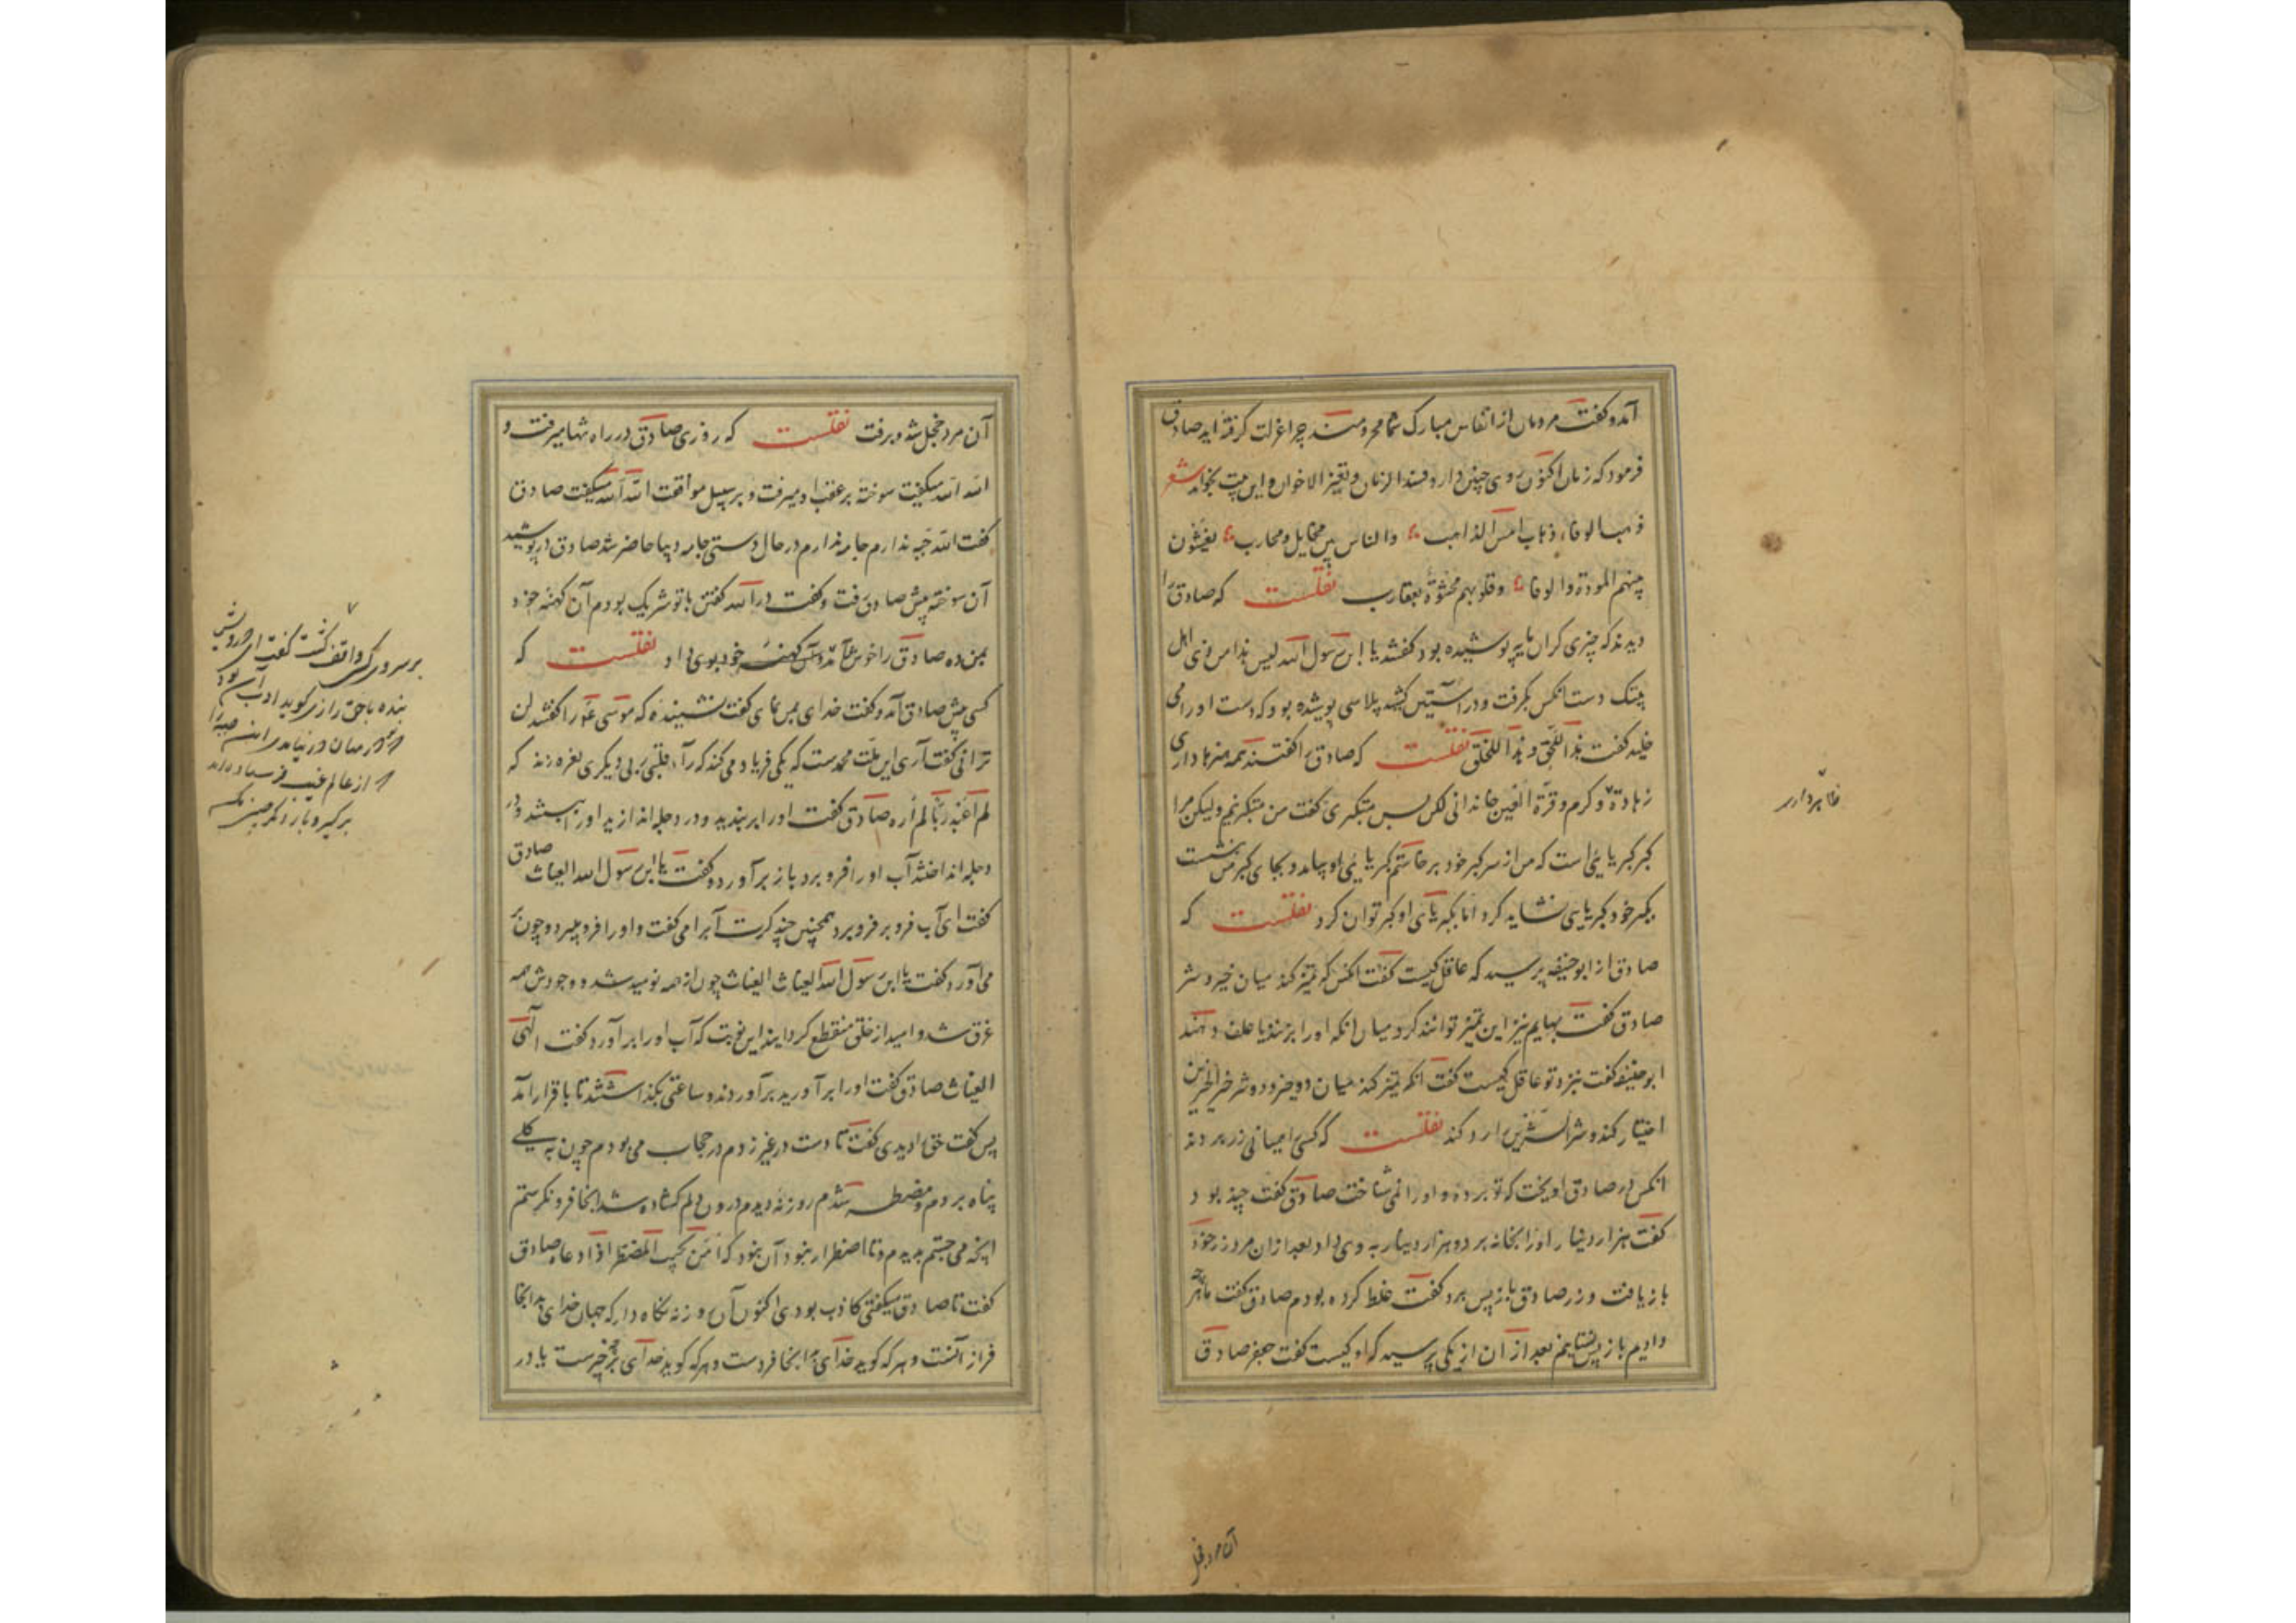 آمد و گفت مردمان از انفاس مبارک شما محرومند چرا عزلت گرفته‌اید صادق
فرمود که زمان اکنون روی چنین دارد فسد الزمان و تغیر الاخوان و این بیت بخواند شعر
ذهب الوفاء ذهاب امس الذاهب والناس بین مخایل و محارب یفشون
بینهم المودة والوفا وقلوبهم محشوة بعقارب نقلست که صادق را
دیدند که خزی گران بها پوشیده بود گفتند یا ابن رسول الله لیس هذا من زی اهل
بیتک دست آنکس بگرفت و در آستین کشید پلاسی پوشیده بود که دست او را می
خلید گفت هذا للحق و هذا للخلق نقلست که صادق را گفتند همه هنرها داری
زهادة و کرم و قرة العین خاندانی لکن بس متکبری گفت من متکبر نیم ولیکن مرا
کبر کبریایی است که من از سر کبر خود برخاستم کبریایی او بیامد و بجای کبر من بنشست
بکبر خود کبریایی نشاید کرد اما بکبریای او کبر توان کرد نقلست که
صادق از ابوحنیفه پرسید که عاقل کیست گفت آنکس که تمیز کند میان خیر و شر
صادق گفت بهایم نیز این تمیز توانند کرد میان آنکه او را بزنند یا علف دهند
ابوحنیفه گفت نزد تو عاقل کیست گفت آنکه تمیز کند میان دو خیر و دو شر خیر الخیرین
اختیار کند و شر الشرین ارد کند نقلست که کسی را همیانی زر بردند
آنکس در صادق آویخت که تو برده و او را نمی شناخت صادق گفت چند بود
گفت هزار دینار او را بخانه برد و هزار دینار به وی داد بعد از آن مرد زر خود
باز یافت و زر صادق باز پس برد گفت غلط کرده بودم صادق گفت ما هر چه
دادیم باز پس نستانیم بعد از آن از یکی پرسید که او کیست گفت جعفر صادق
آن مرد خجل
آن مرد خجل شد و برفت نقلست که روزی صادق در راه تنها میرفت و
الله الله میگفت سوخته بر عقب او میرفت و بر سبیل موافقت الله الله میگفت صادق
گفت الله جبه ندارم جامه ندارم در حال دستی جامه دیبا حاضر شد صادق درپوشید
آن سوخته پیش صادق رفت و گفت در الله گفتن با تو شریک بودم آن کهنه خود
بمن ده صادق را خوش آمد و آن کهنه خود بوی داد نقلست که
کسی پیش صادق آمد و گفت خدای بمن نمای گفت نشنیده که موسی را گفتند لن
ترانی گفت آری این ملت محمدست که یکی فریاد می کند که رآی قلبی ربی و دیگری نعره زند که
لم اعبد ربا لم اره صادق گفت او را بربندید و در دجله اندازید او را ببستند و در
دجله انداختند آب او را فرو برد باز برآورد و گفت یا ابن رسول الله الغیاث صادق
گفت ای آب فرو بر فرو برد همچنین چند کرت آب را می گفت و او را فرو میبرد و چون بر
می آورد گفت یا ابن رسول الله الغیاث الغیاث چون از همه نومید شد و وجودش همه
غرق شد و امید از خلق منقطع گردانید این نوبت که آب او را برآورد گفت الهی
الغیاث صادق گفت او را برآورید برآوردند و ساعتی بگذاشتند تا باقرار آمد
پس گفت حق را دیدی گفت تا دست در غیر زدم در حجاب می بودم چون به کلی
پناه بردم و مضطر شدم روزنه دیدم درون دلم گشاده شد آنجا فرو نگرستم
آنچه می جستم بدیدم و تا اضطرار نبود آن نبود که امن یجیب المضطر اذا دعاه صادق
گفت تا صادق میگفتی کاذب بودی اکنون آن روزنه نگاه دار که جهان خدای بدانجا
فراز آنست و هر که گوید خدای بر آنجا فردست و هر که گوید خدای بر چیزست یا در
بر سر و رکسی واقف گشت گفت ای درویش
بنده با حق راز میگوید ادب آن بود